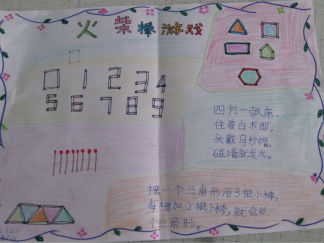 火柴棒游戏
0 1 2 3 4
5 6 7 8 9
四方一张床,
住着白木郎,
头戴乌纱帽,
碰墙就发光。
摆一个三角形用3根小棒,
每增加2根小棒,就会多
一个三角形。